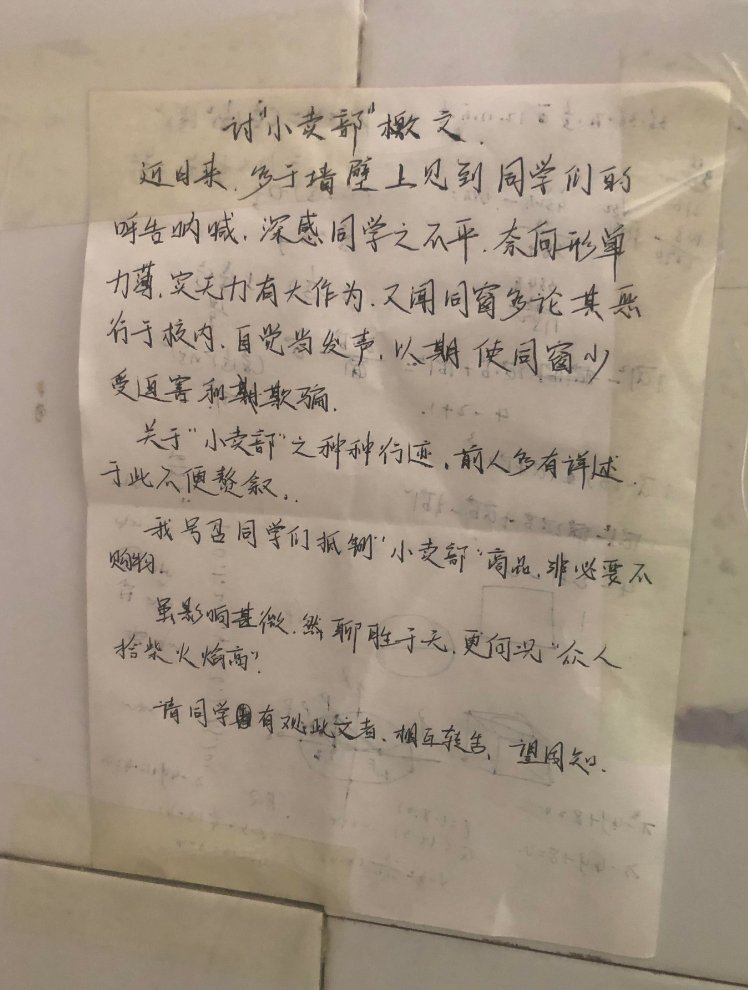 讨“小卖部”檄文.
近日来,多于墙壁上见到同学们的
呼告呐喊,深感同学之不平,奈何形单
力薄,实无力有大作为,又闻同窗多论其恶
行于校内,自觉当发声,以期使同窗少
受迫害和欺骗.
关于“小卖部”之种种行迹,前人多有详述,
于此不便赘叙..
我号召同学们抵制“小卖部”商品,非必要不
购物.
虽影响甚微,然聊胜于无,更何况“众人
拾柴火焰高”.
请同学有观此文者,相互转告,望周知.